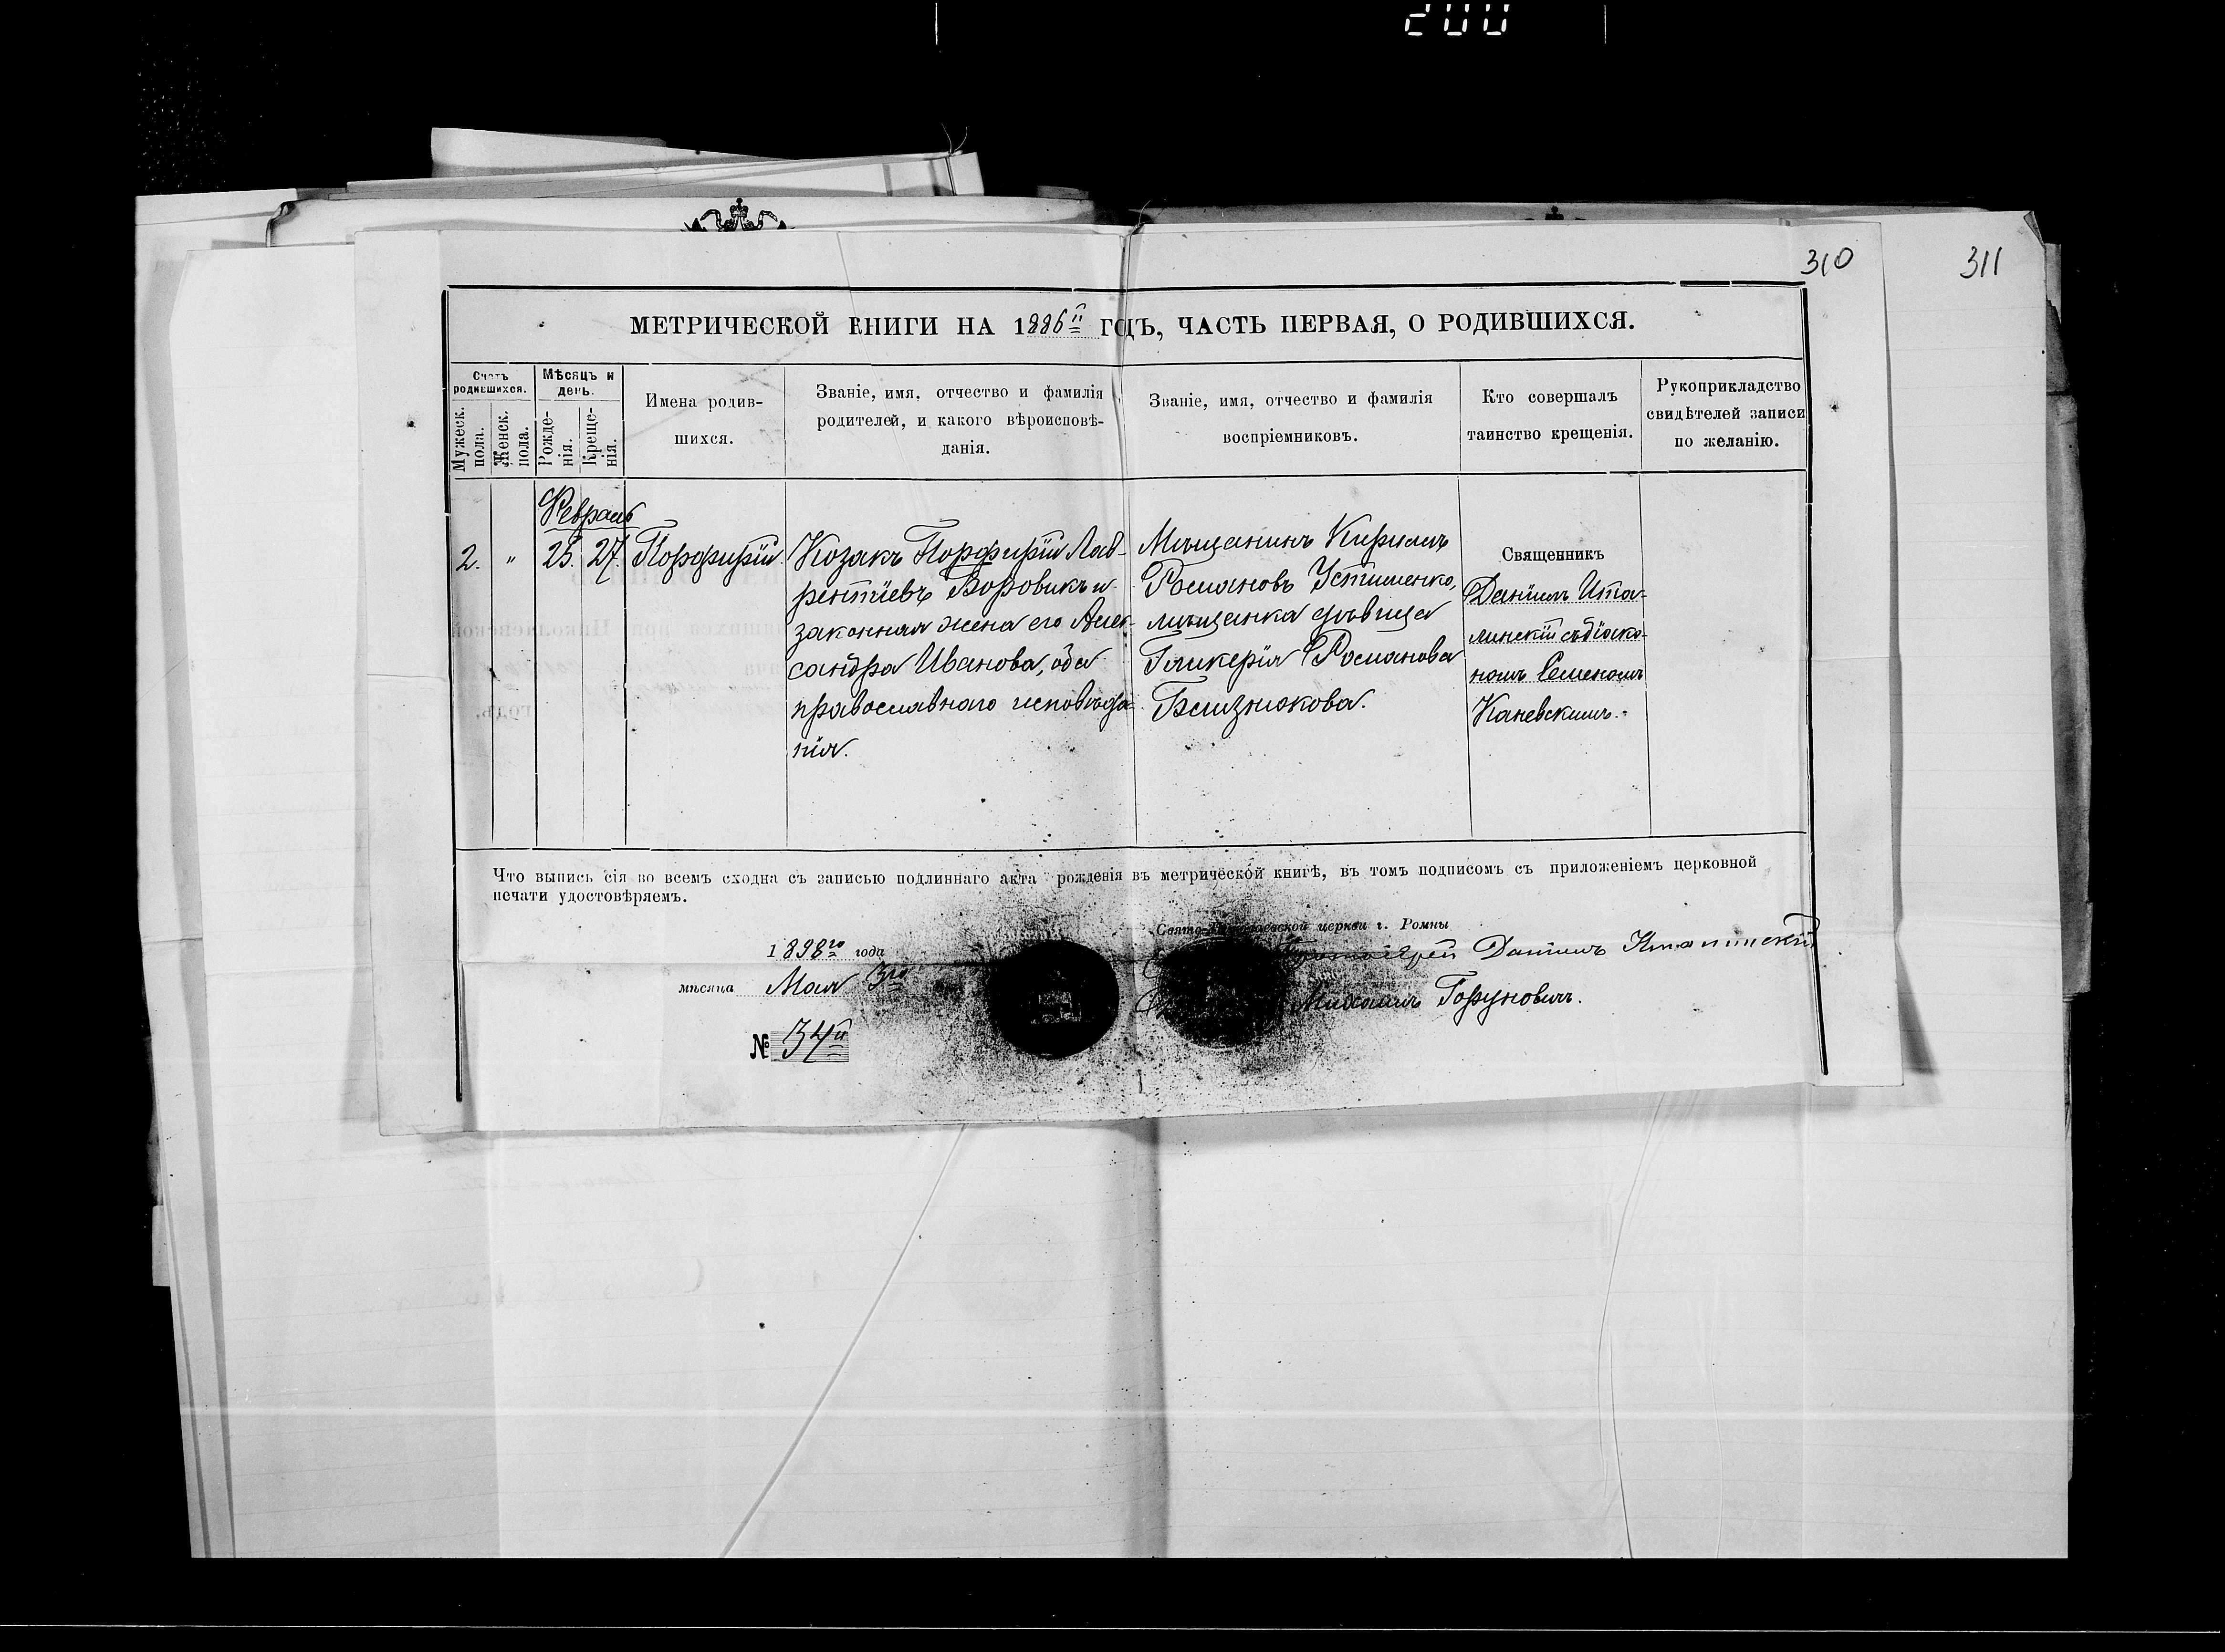 200
310
311
МЕТРИЧЕСКОЙ КНИГИ НА 1886й ГОДЪ, ЧАСТЬ ПЕРВАЯ, О РОДИВШИХСЯ.
Счетъ родившихся.
Мужеск. пола.
Женск. пола.
Мѣсяцъ и день.
Рожде-
нія.
Креще-
нія.
Имена родив-
шихся.
Званіе, имя, отчество и фамилія
родителей, и какого вѣроисповѣ-
данія.
Званіе, имя, отчество и фамилія
воспріемниковъ.
Кто совершалъ
таинство крещенія.
Рукоприкладство
свидѣтелей записи
по желанію.
Февраль
2. " 25. 27. Порфирій.
Козакъ Порфирій Лав-
рентіевъ Боровикъ и
законная жена его Алек-
сандра Иванова, оба
православнаго исповѣда-
нія.
Мѣщанинъ Кирилъ
Романовъ Устименко,
мѣщанка дѣвица
Гликерія Романова
Близнюкова.
Священникъ
Даніилъ Ита-
линскій съ діако-
номъ Семеномъ
Каневскимъ.
Что выпись сія во всемъ сходна съ записью подлиннаго акта рожденія въ метрической книгѣ, въ томъ подписомъ съ приложеніемъ церковной
печати удостовѣряемъ.
1898го года
мѣсяца Мая 3го
№ 34й
Свято-Николаевской церкви г. Ромны
Протоіерей Даніилъ Италинскій
Михаилъ Горуновичъ.